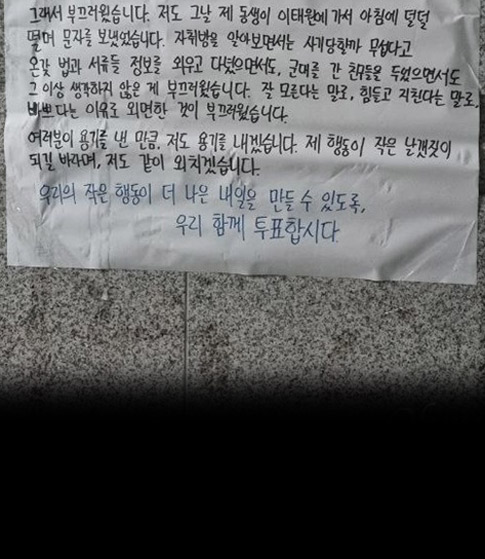 그래서 부끄러웠습니다. 저도 그날 제 동생이 이태원에 가서 아침에 덜덜
떨며 문자를 보냈었습니다. 자취방을 알아보면서는 사기당할까 무섭다고
온갖 법과 서류들 정보를 외우고 다녔으면서도, 군대를 간 친구들을 두었으면서도
그 이상 생각하지 않은 게 부끄러웠습니다. 잘 모른다는 말로, 힘들고 지친다는 말로,
바쁘다는 이유로 외면한 것이 부끄러웠습니다.
여러분이 용기를 낸 만큼, 저도 용기를 내겠습니다. 제 행동이 작은 날갯짓이
되길 바라며, 저도 같이 외치겠습니다.
우리의 작은 행동이 더 나은 내일을 만들 수 있도록,
우리 함께 투표합시다.